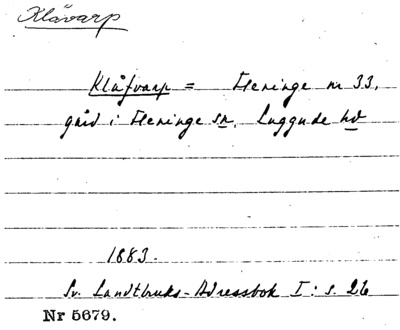 Klåvarp
Klåfvarp = Fleninge nr 33,
gård i Fleninge sn, Luggude hd
1883.
Sv. Landtbruks-Adressbok I: s. 26
Nr 5679.